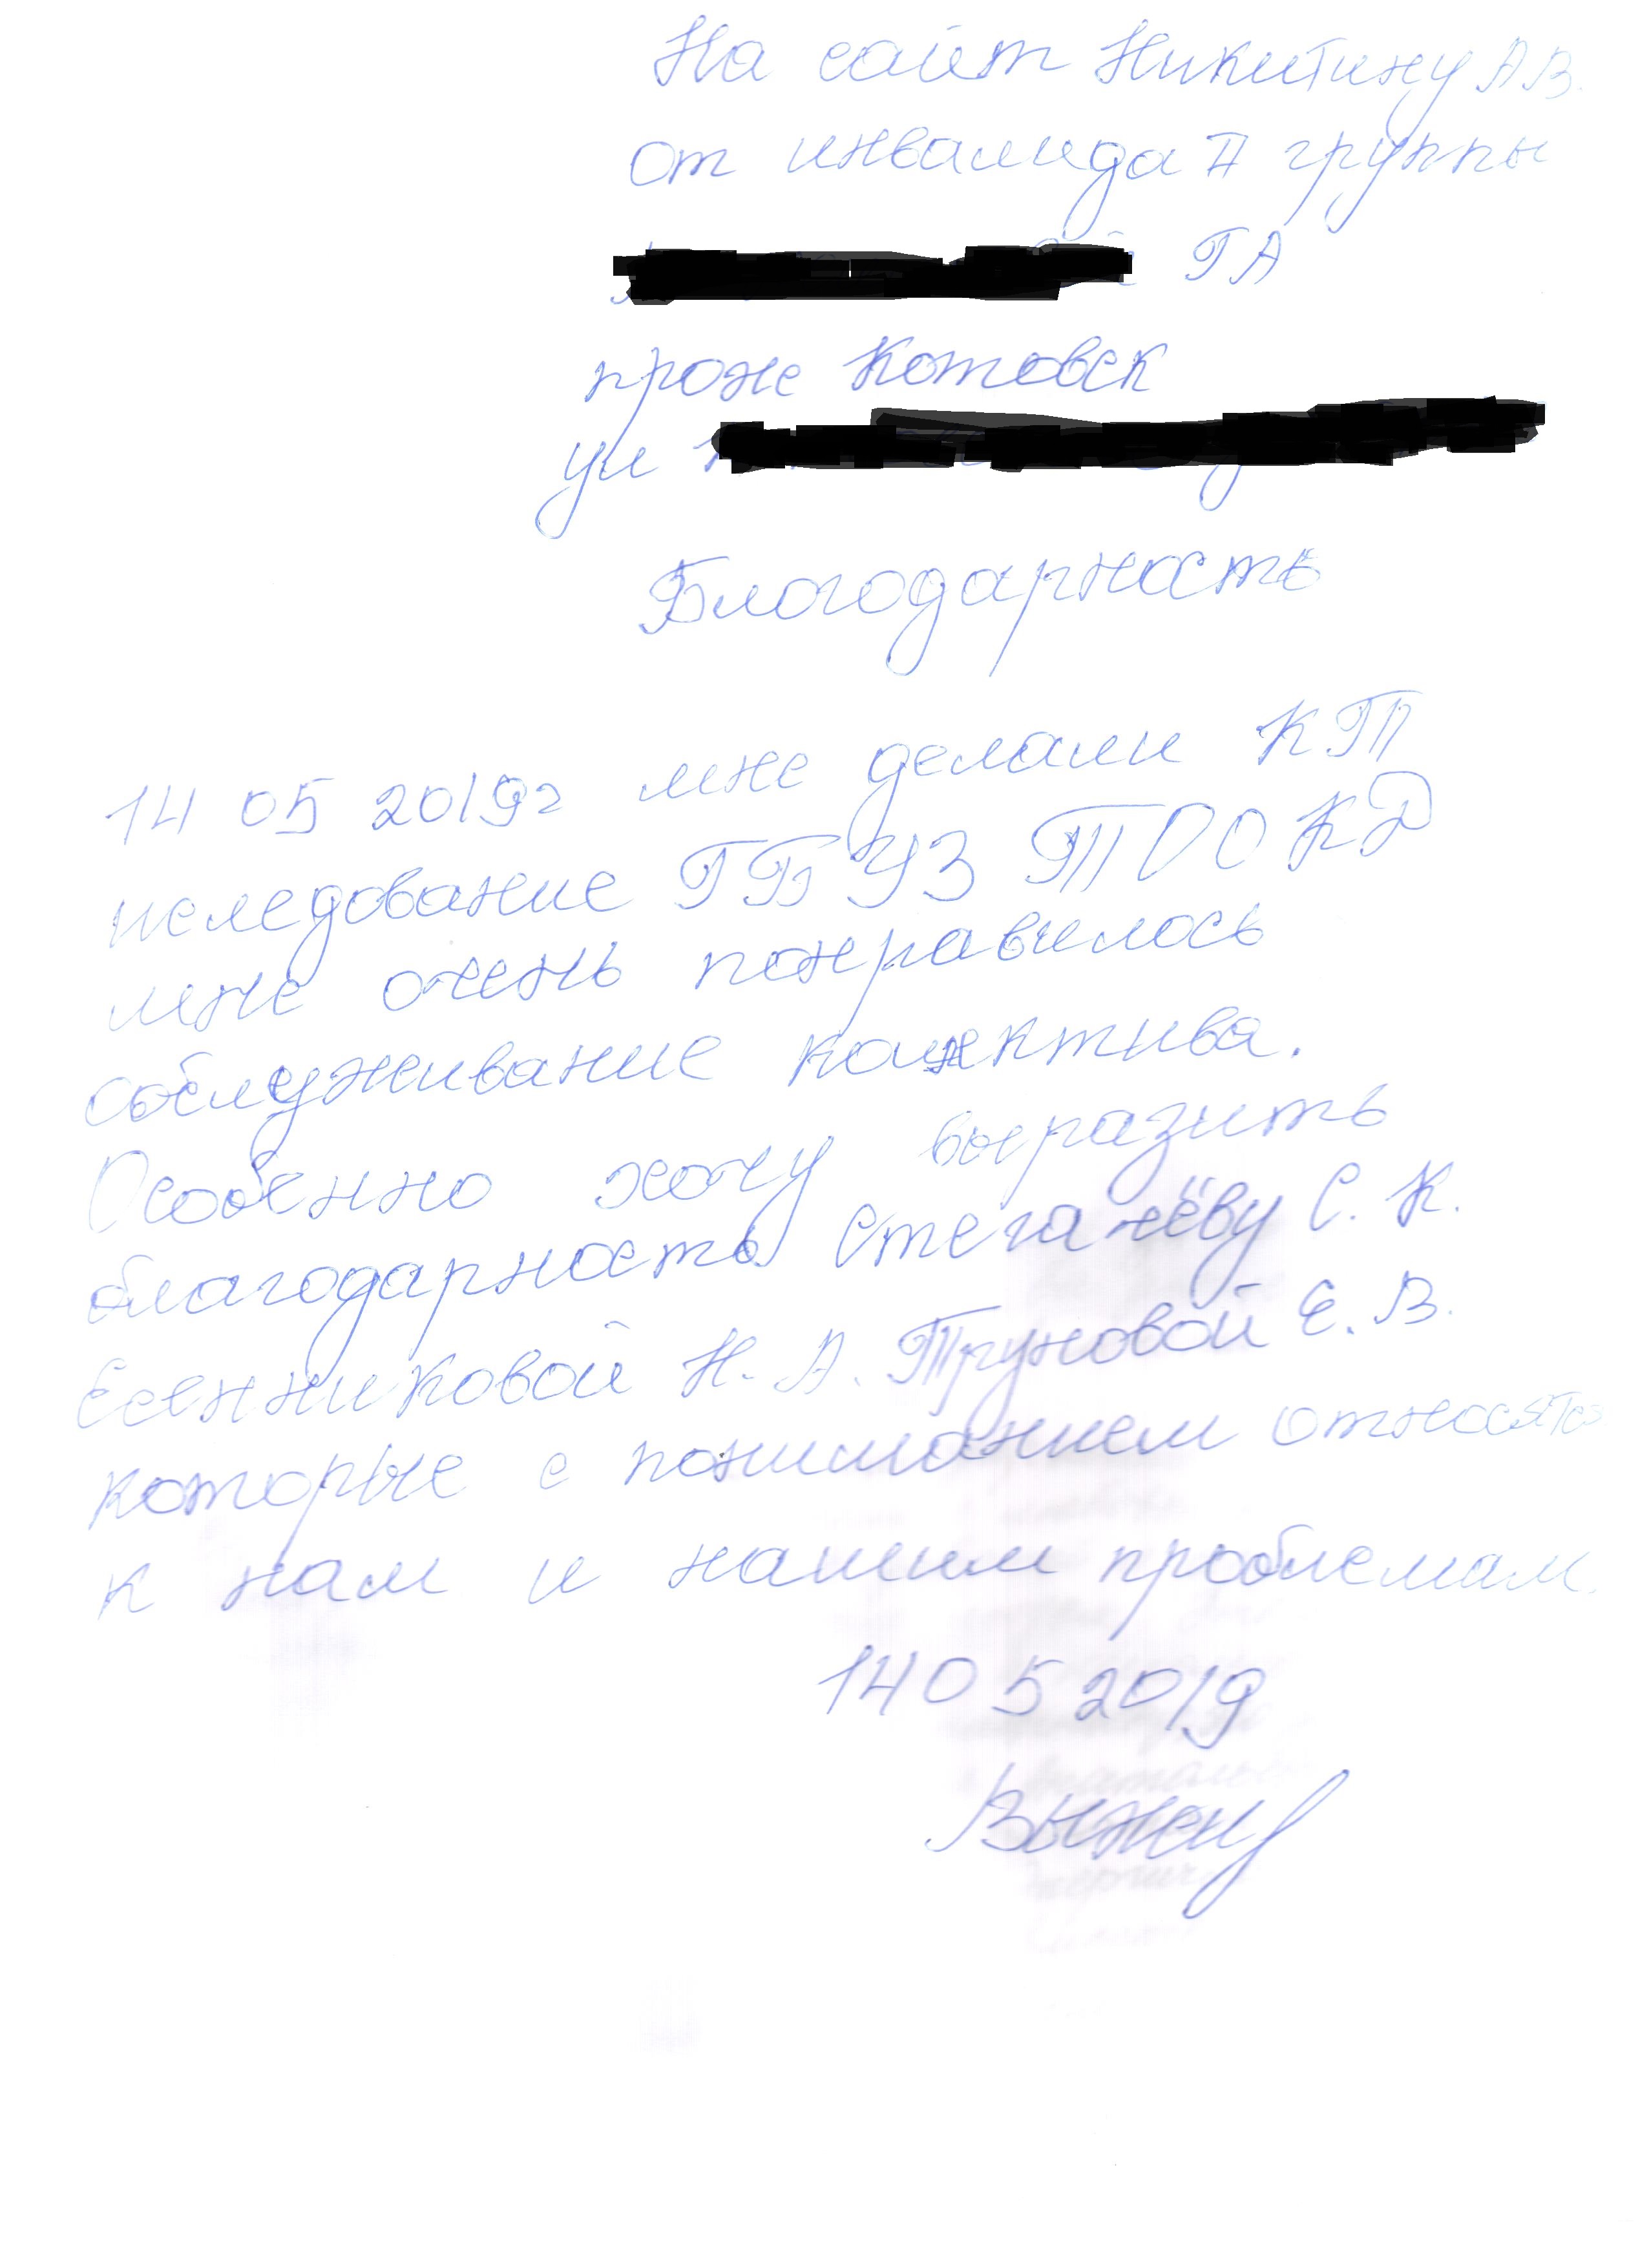 На сайт Никитину А.В.
от инвалида II группы
ГА
прож Котовск
ул
Благодарность
14 05 2019г мне делали КТ
иследование ГБУЗ ТООКД
мне очень понравилось
обслуживание колектива.
Особенно хочу выразить
благодарность Стеганёву С. К.
Есенниковой Н. А. Труновой Е. В.
которые с пониманием относятся
к нам и нашим проблемам.
14 05 2019